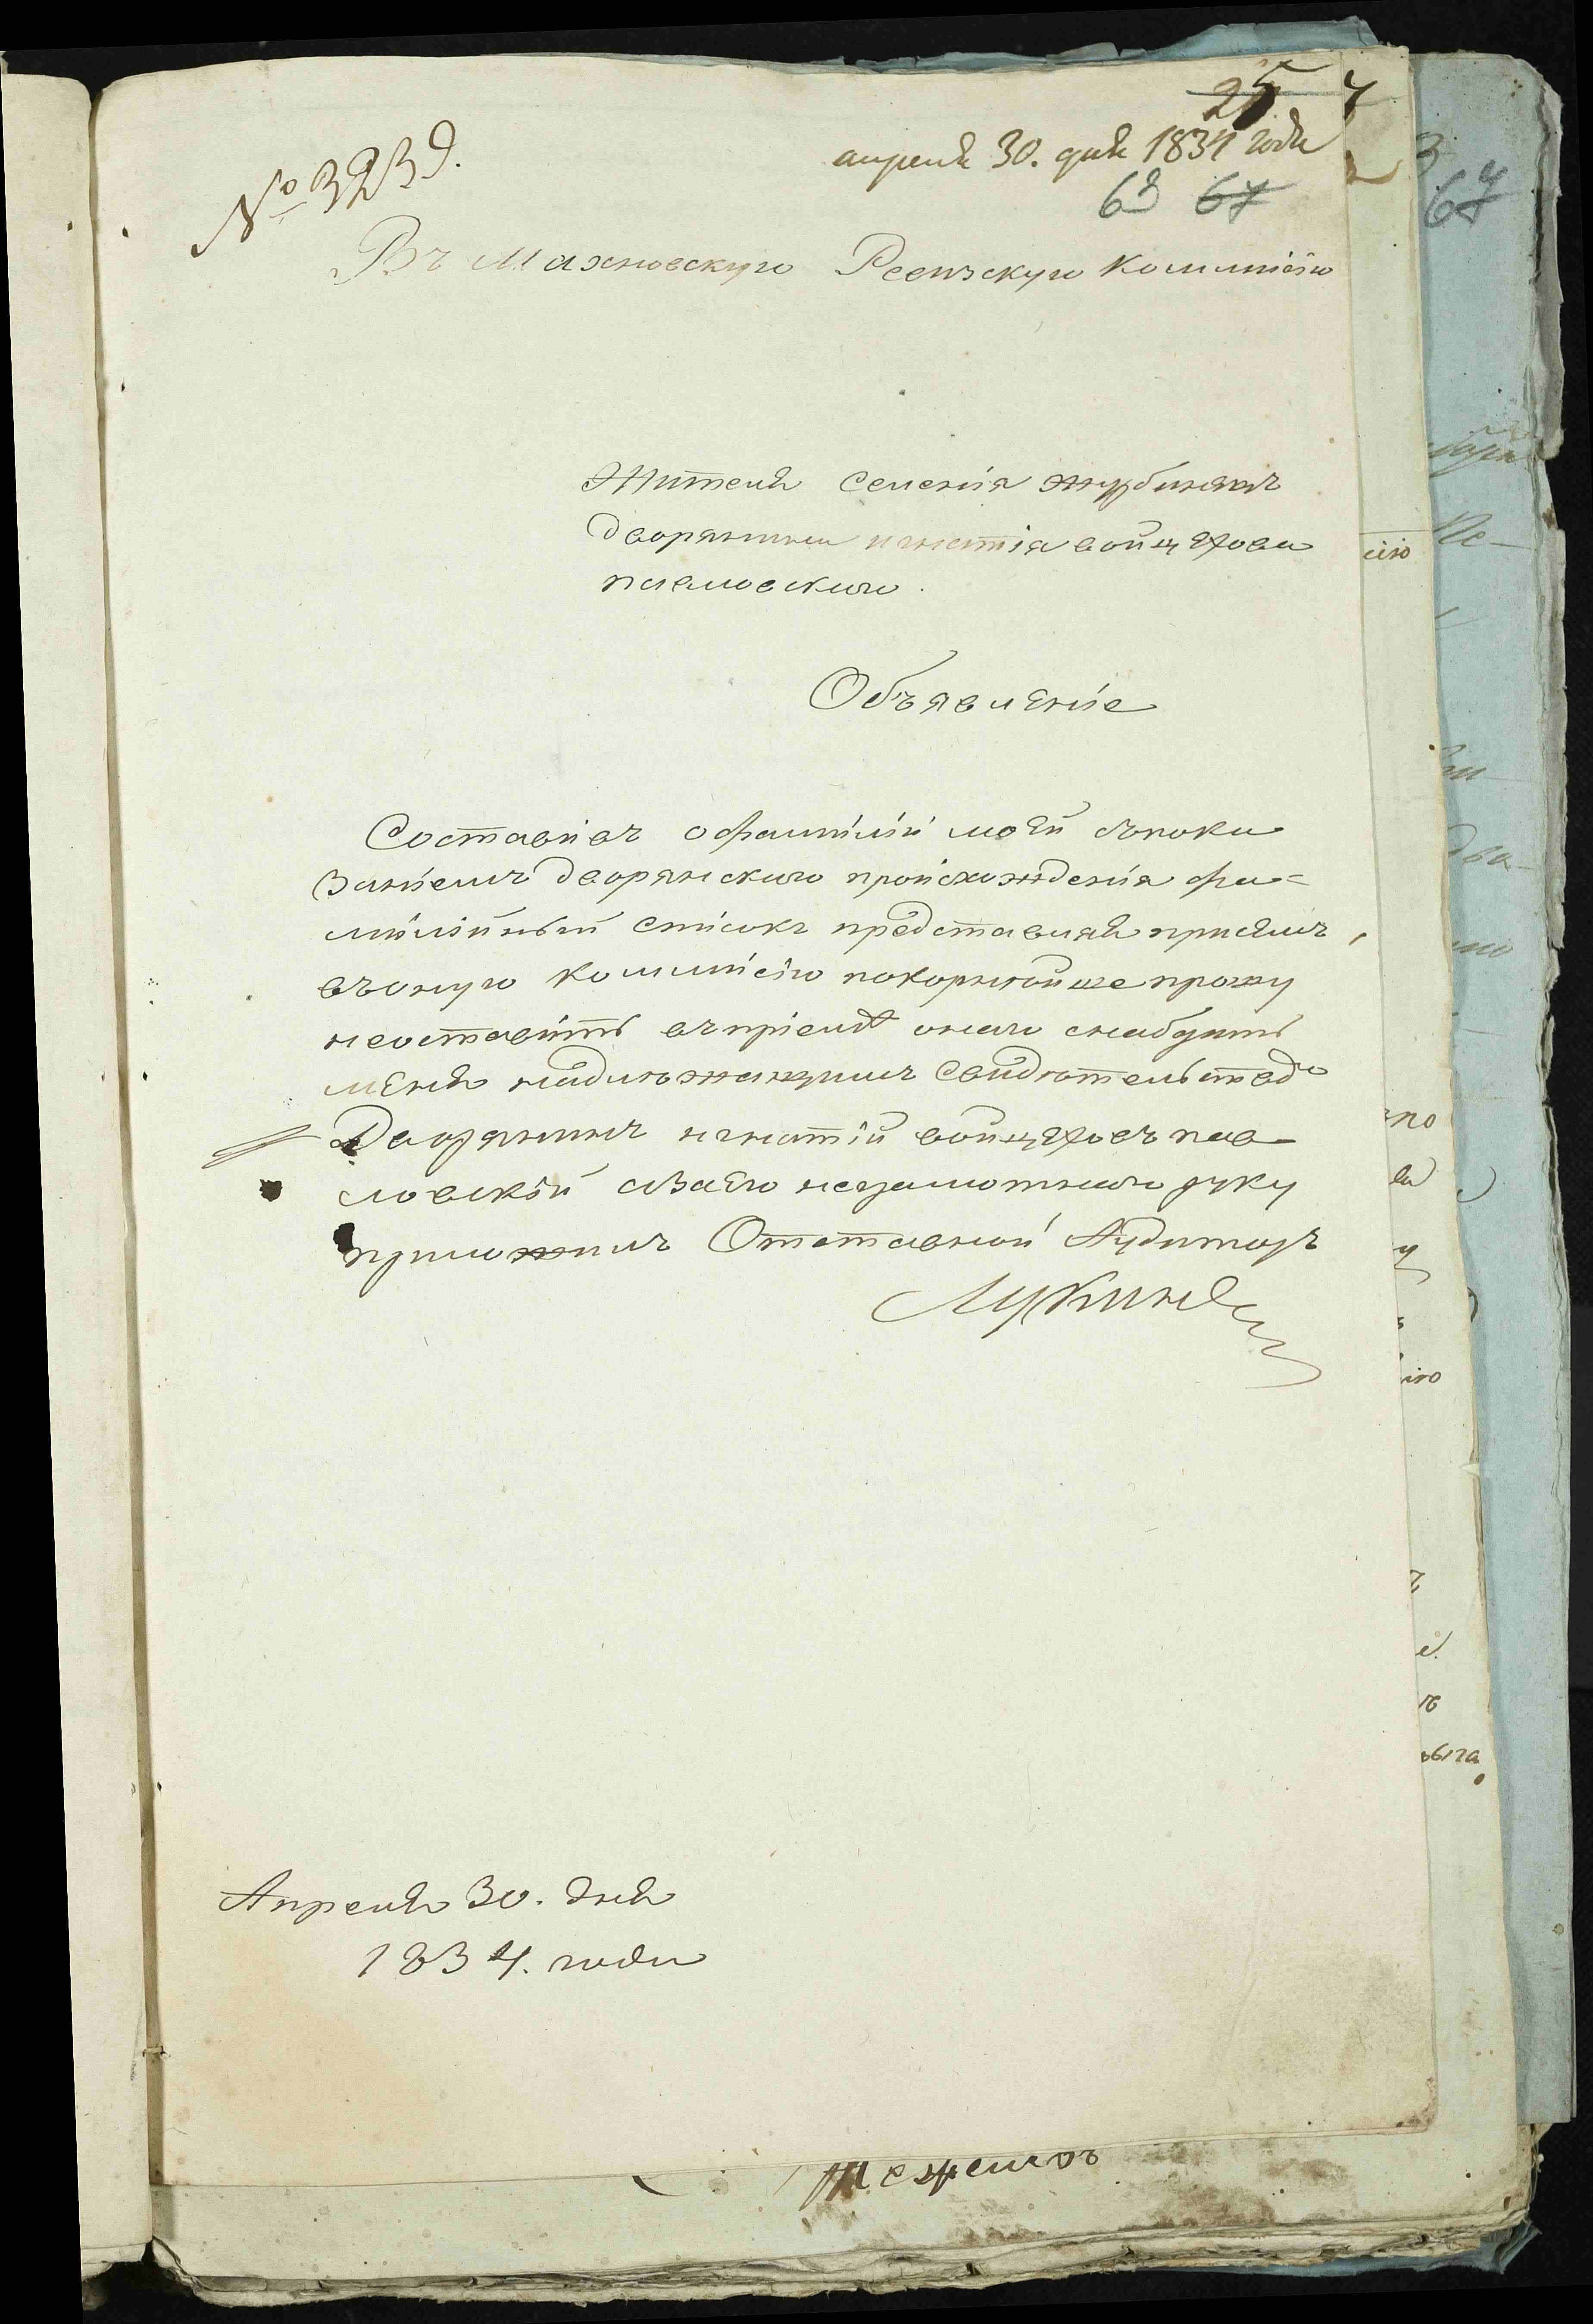 25
№ 3239.
апреля 30. дня 1834 года
67
Въ Махновскую Ревизскую Коммисію
Жителя Селенія Журбинецъ
дворянина игнатія войцехова
павловскаго.
Объявленіе
Составивъ о фамиліи моей съ пока
заніемъ дворянскаго происхожденія фа=
милійный списокъ представляя при семъ
въ оную Коммисію покорнейше прошу
не оставить въ пріеме онаго снабдить
меня надлежащимъ Свидетельствомъ
Дворянинъ игнатій войцеховъ пав
ловскій а за его неграмотнаго руку
приложилъ Отставной Аудиторъ
Апреля 30. дня
1834. года